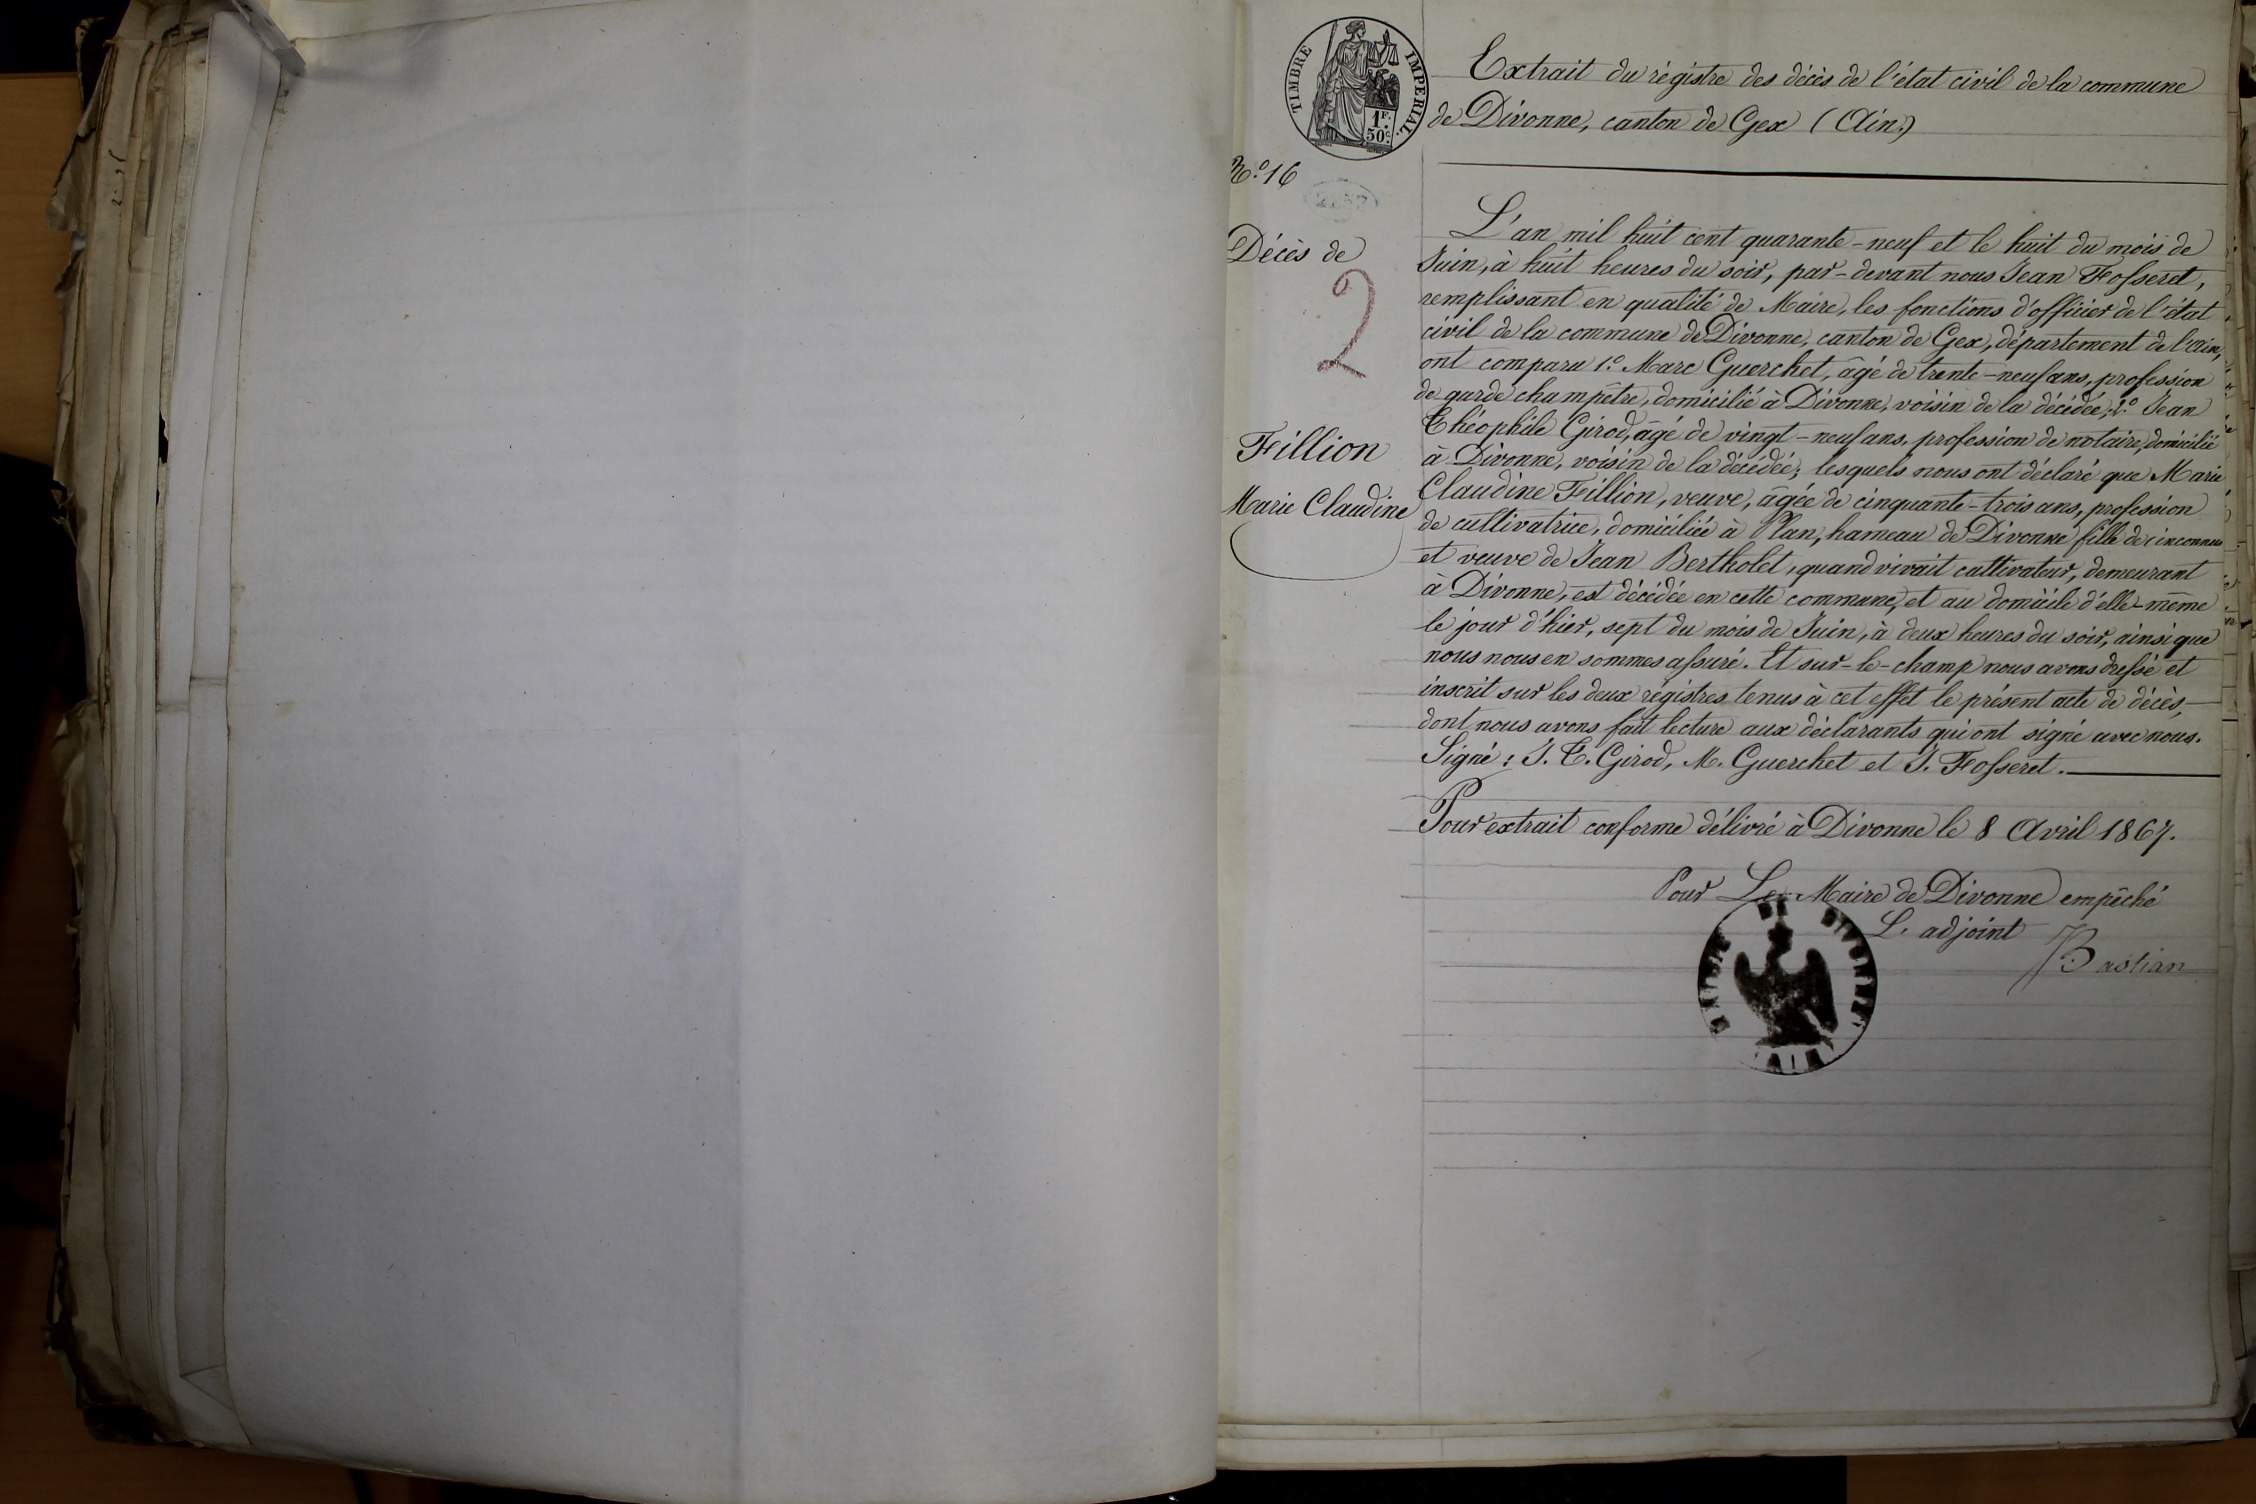 TIMBRE IMPERIAL.
1F.
50c.
Extrait du régistre des décès de l'état civil de la commune
de Divonne, canton de Gex (Ain.)
No. 16
Décès de
2
Fillion
Marie Claudine
L'an mil huit cent quarante-neuf et le huit du mois de
Juin, à huit heures du soir, par-devant nous Jean Fosseret,
remplissant en qualité de Maire, les fonctions d'officier de l'état
civil de la commune de Divonne, canton de Gex, département de l'ain,
ont comparu 1o. Marc Guerchet, âgé de trente-neuf ans, profession
de garde champêtre, domicilié à Divonne, voisin de la décédée; 2o. Jean
Théophile Girod, âgé de vingt-neuf ans, profession de notaire, domicilié
à Divonne, voisin de la décédée; lesquels nous ont déclaré que Marie
Claudine Fillion, veuve, âgée de cinquante-trois ans, profession
de cultivatrice, domiciliée à Plan, hameau de Divonne fille de inconnus
et veuve de Jean Bertholet, quand vivait cultivateur, demeurant
à Divonne, est décédée en cette commune, et au domicile d'elle-même
le jour d'hier, sept du mois de Juin, à deux heures du soir, ainsi que
nous nous en sommes assuré. Et sur-le-champ nous avons dressé et
inscrit sur les deux régistres tenus à cet effet le présent acte de décès,
dont nous avons fait lecture aux déclarants qui ont signé avec nous.
Signé: J. T. Girod, M. Guerchet et J. Fosseret.
Pour extrait conforme délivré à Divonne le 8 Avril 1867.
Pour Le Maire de Divonne empêché
L'adjoint
Bastian
MAIRIE DE DIVONNE
(AIN)